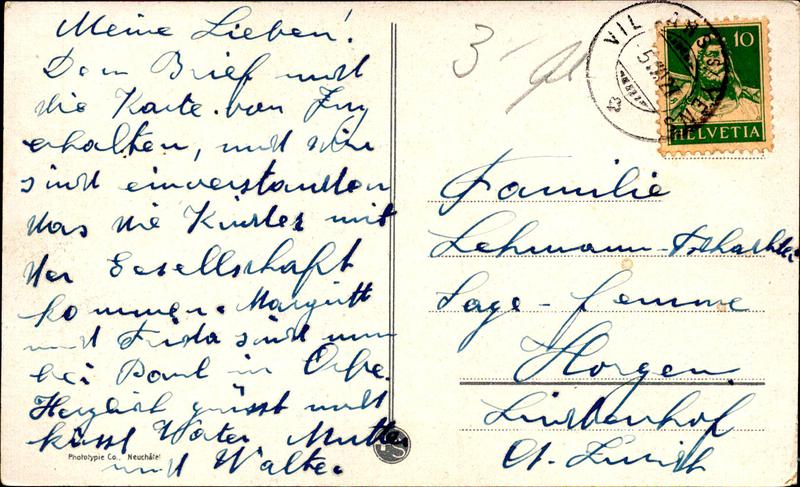 Meine Lieben!
Den Brief und
die Karte von Zug
erhalten, und wir
sind einverstanden
das die Kinder mit
der Gesellschaft
kommen. Margritt
und Frida sind nun
bei Paul in Orbe.
Herzlich grüsst und
küsst Vater Mutter
und Walter
Phototypie Co., Neuchâtel
3
10
HELVETIA
Familie
Lehmann-
Sage-femme
Horgen.
Lindenhof
Ct. Zürich